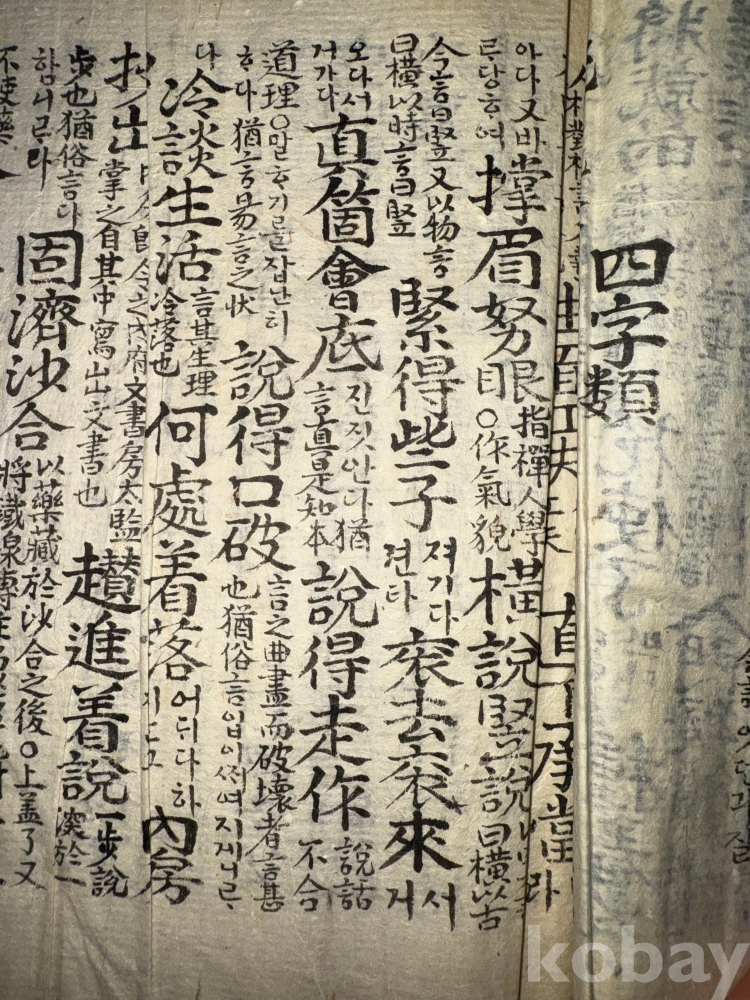 四字類
直下承當
아다又바
르당ᄒᆞ여
撑眉努眼
指禪人學
○作氣貌
橫說竪說
曰橫以古
今言曰竪又以物言
曰橫以時言曰竪
緊得些子
져기다
견다
衮去衮來
서
거
오다서
거가다
眞箇會底
진짓안다猶
言眞是知本
說得走作
說話
不合
道理○말ᄒᆞ기ᄅᆞᆯ잡난히
ᄒᆞ다猶言易言之狀
說得口破
言之曲盡而破壞者言甚
也猶俗言입이써여지게니ᄅᆞ
다
冷談生活
言其生理
冷落也
何處着落
어듸다하
內房
抄出
今之內府文書房太監
掌之自其中寫出文書也
趲進着說
一步說
深於一
步也猶俗言다
함니ᄅᆞ라
固濟沙合
以藥藏於沙合之後○上盖了又
不使藥
kobay